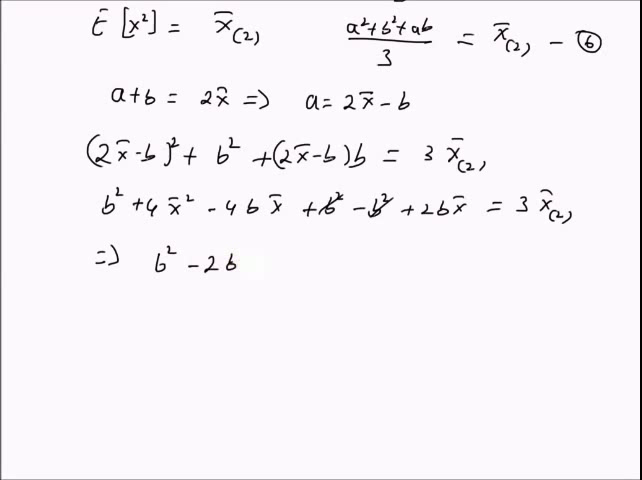 E[x²] = x̄₍₂₎   (a²+b²+ab)/3 = x̄₍₂₎ – ⑥
a+b = 2x̄ => a = 2x̄ – b
(2x̄–b)² + b² + (2x̄–b)b = 3x̄₍₂₎
b² + 4x̄² – 4bx̄ + b² – b² + 2bx̄ = 3x̄₍₂₎
=> b² – 2b